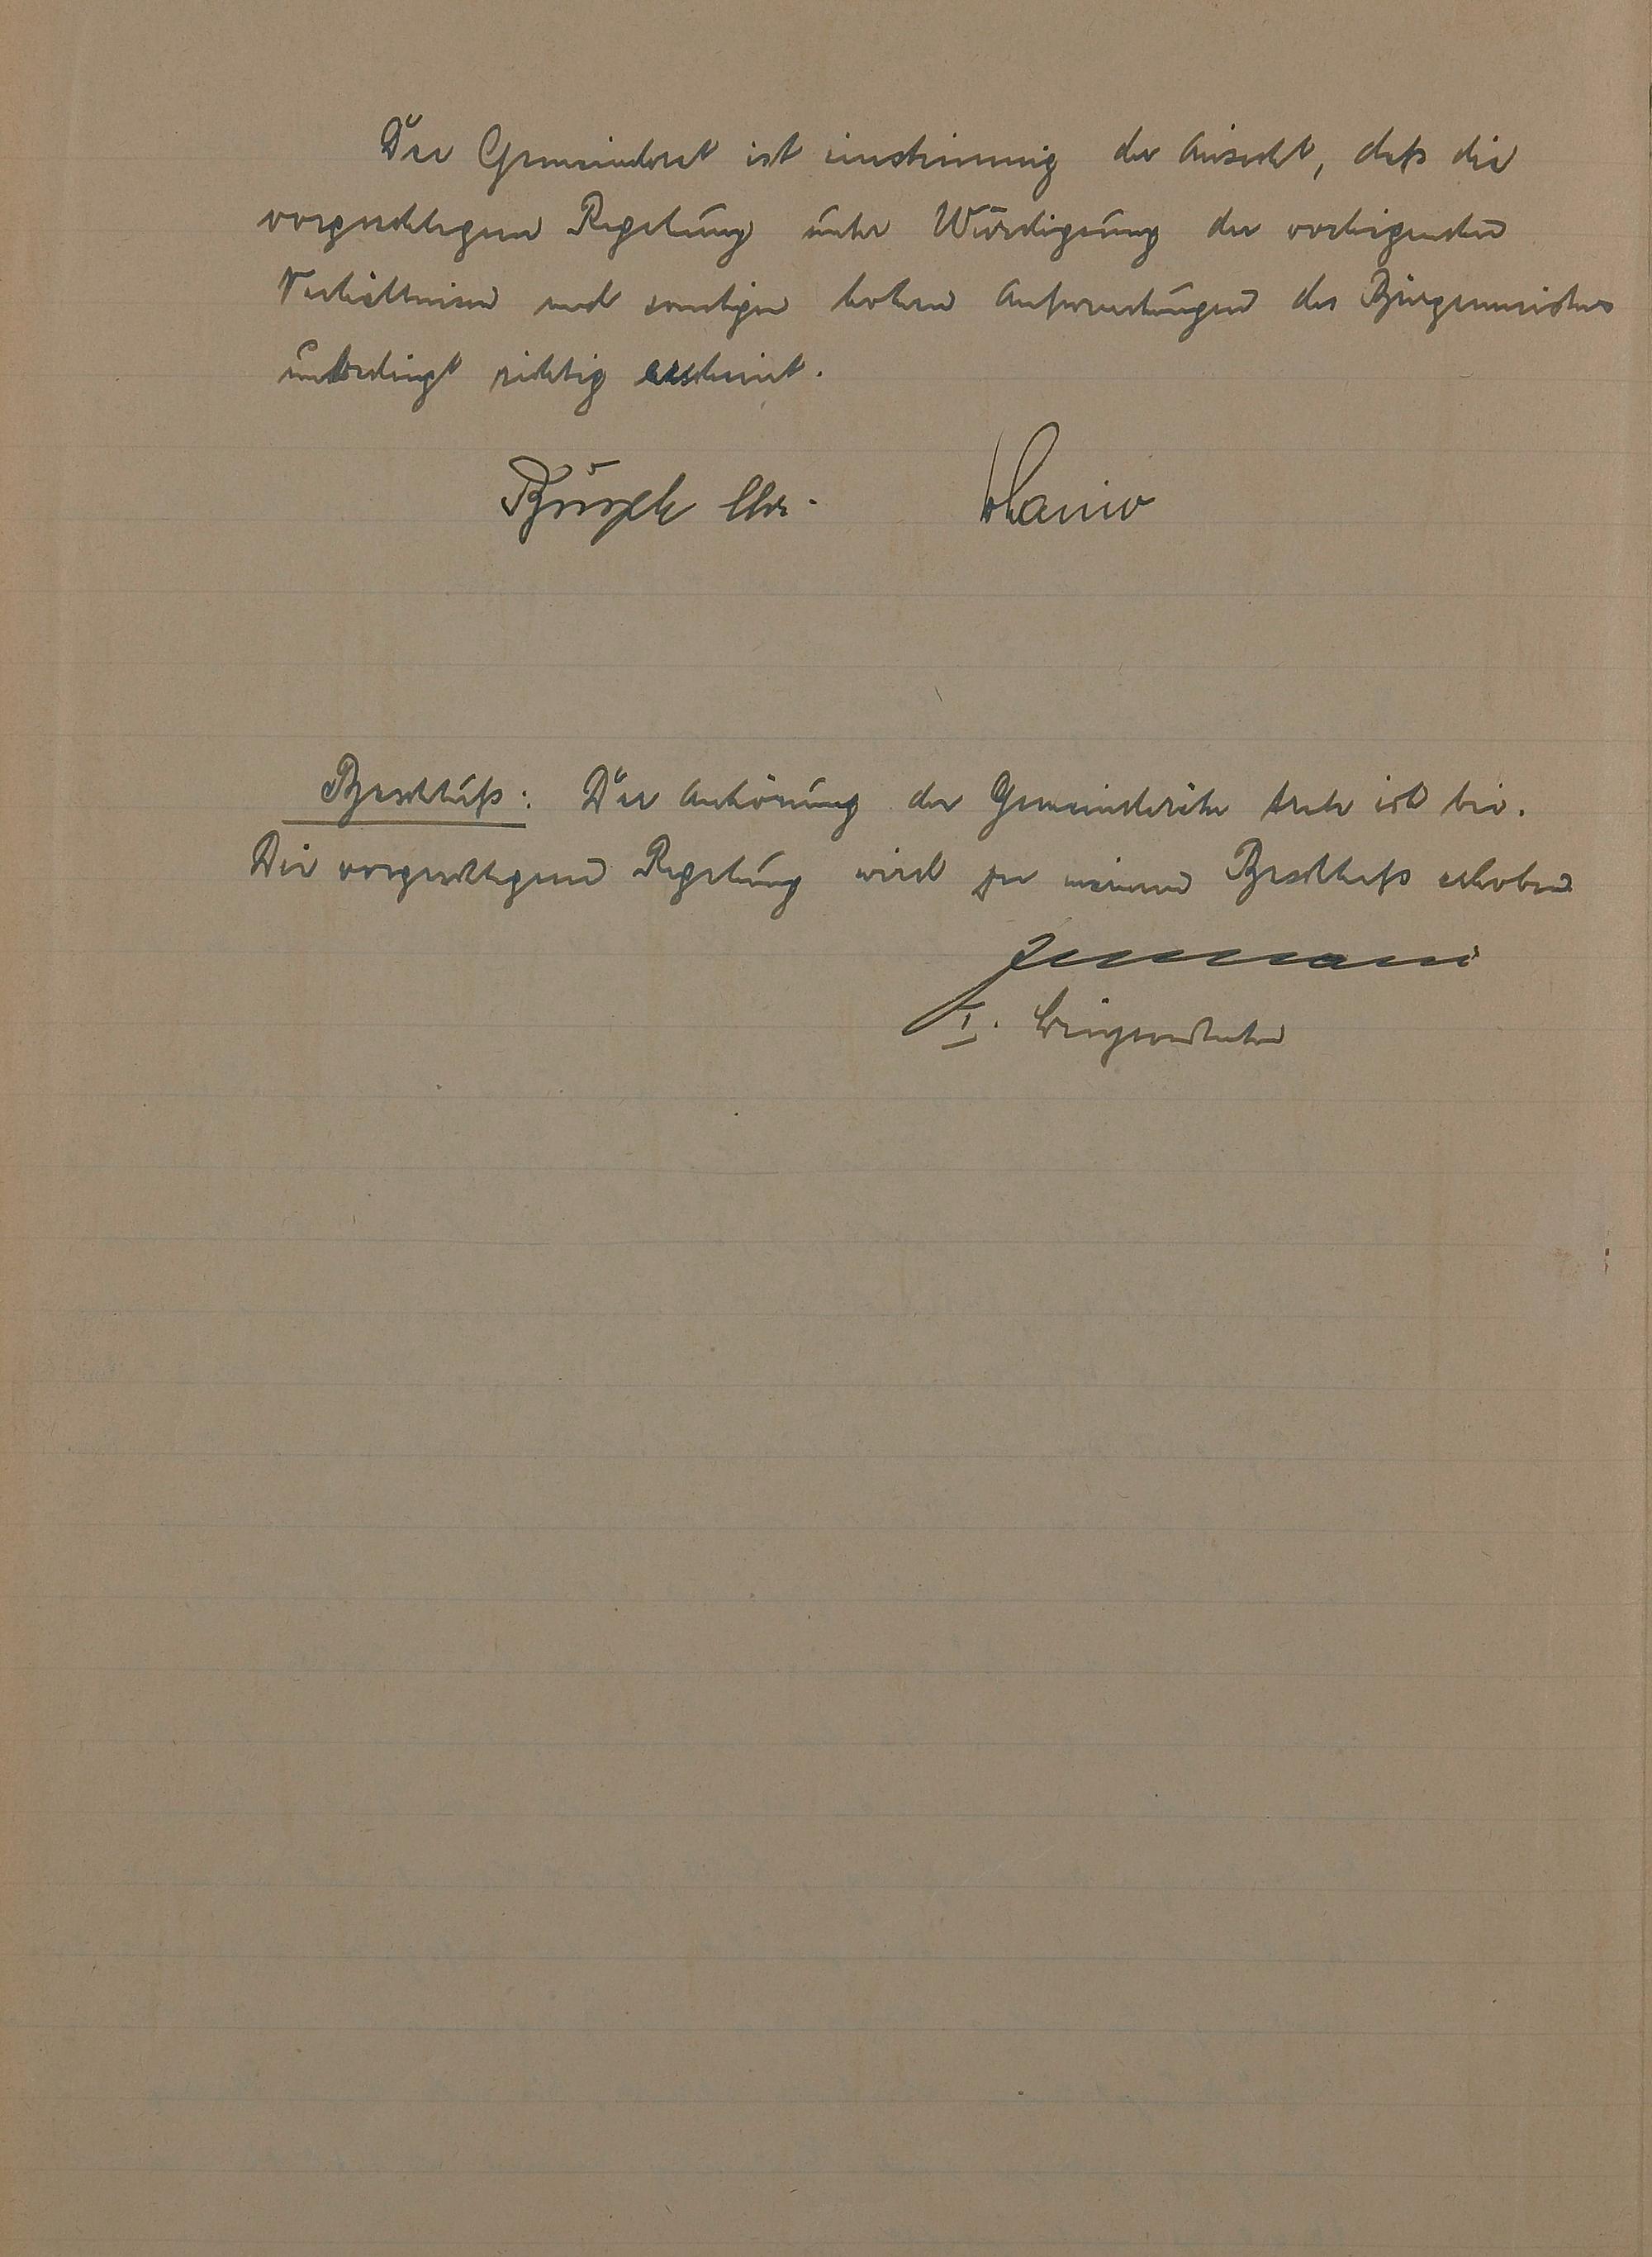 Der Gemeinderat ist einstimmig der Ansicht, daß die
vorgeschlagene Regelung unter Würdigung der vorliegenden
Verhältnisse und sonstigen hohen Aufwendungen des Bürgermeisters
unbedingt richtig erscheint.
Beschluß: Der Anhörung der Gemeinderäte trete ich bei.
Die vorgeschlagene Regelung wird zu meinem Beschluß erhoben
I. Beigeordneter